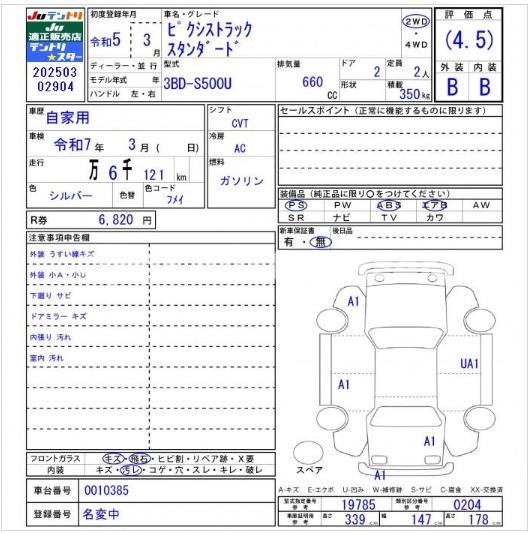 Juテントリ
Ju
適正販売店
テントリ
★スター
202503
02904
初度登録年月
令和5 年 3 月
ディーラー・並行
モデル年式 年
ハンドル 左・右
車名・グレード
ピクシストラック
スタンダード
型式
3BD-S500U
排気量
660 CC
ドア 2
形状
2WD
・
4WD
定員
2人
積載
350kg
評価点
(4.5)
外装 内装
B B
車歴
自家用
車検
令和7年 3月 ( 日)
走行
万 6千 121 km
色
シルバー
色替
色コード
フメイ
R券 6,820 円
シフト
CVT
冷房
AC
燃料
ガソリン
セールスポイント(正常に機能するものに限ります)
装備品(純正品に限り○をつけてください)
PS PW ABS エアB AW
SR ナビ TV カワ
新車保証書
有・無
後日品
注意事項申告欄
外装 うすい線キズ
外装 小A・小U
下廻り サビ
ドアミラー キズ
内張り 汚れ
室内 汚れ
A1
A1
UA1
A1
A1
スペア
フロントガラス キズ・飛石・ヒビ割・リペア跡・X要
内装 キズ・汚レ・コゲ・穴・スレ・キレ・破レ
A-キズ E-エクボ U-凹み W-補修跡 S-サビ C-腐食 XX-交換済
車台番号 0010385
登録番号 名変中
型式指定番号 19785 類別区分番号 0204
車庫証明用
参考 長さ 339 cm 幅 147 cm 高さ 178 cm